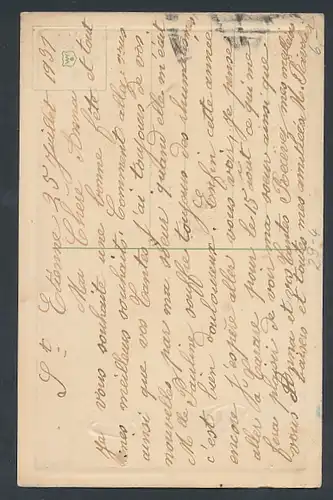 St Etienne 25 Juillet 1931
Ma Chère Anna
Je vous souhaite une bonne fête et tout
mes meilleurs souhaits. Comment allez-vous
ainsi que vos tantes j'ai toujours de vos
nouvelles par ma sœur quand elle m'écrit
Melle Pauline souffre toujours des rhumatismes
c'est bien douloureux. Enfin cette année
encore j'espère aller vous voir je pense
aller la Girale pour le 15 août ce qui me
fera plaisir de voir ma sœur ainsi que
vous Anna et vos tantes Recevez mes meilleurs
baisers et toutes mes amitiés M.